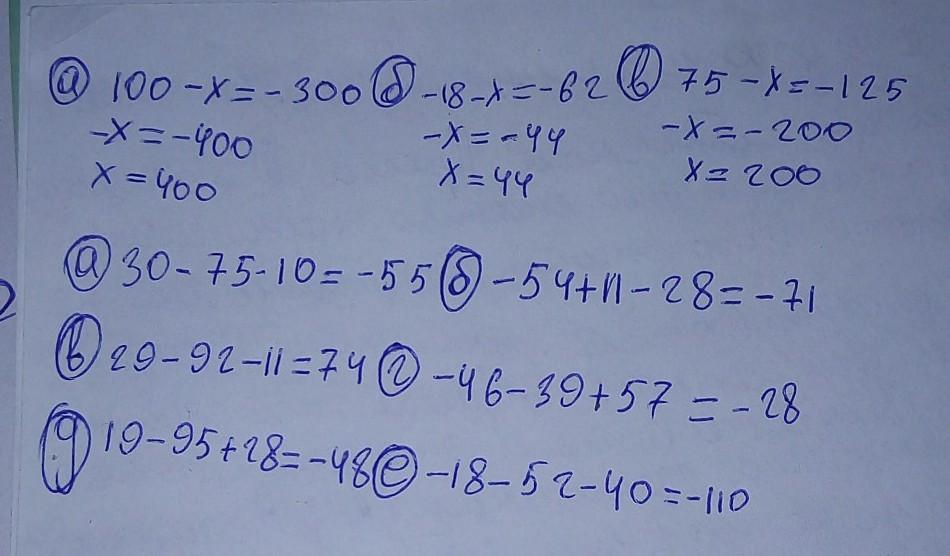 а) 100 - x = - 300 б) -18 - x = -62 в) 75 - x = -125
-x = -400 -x = -44 -x = -200
x = 400 x = 44 x = 200
а) 30 - 75 - 10 = -55 б) -54 + 11 - 28 = -71
в) 29 - 92 - 11 = 74 г) -46 - 39 + 57 = -28
д) 19 - 95 + 28 = -48 е) -18 - 52 - 40 = -110